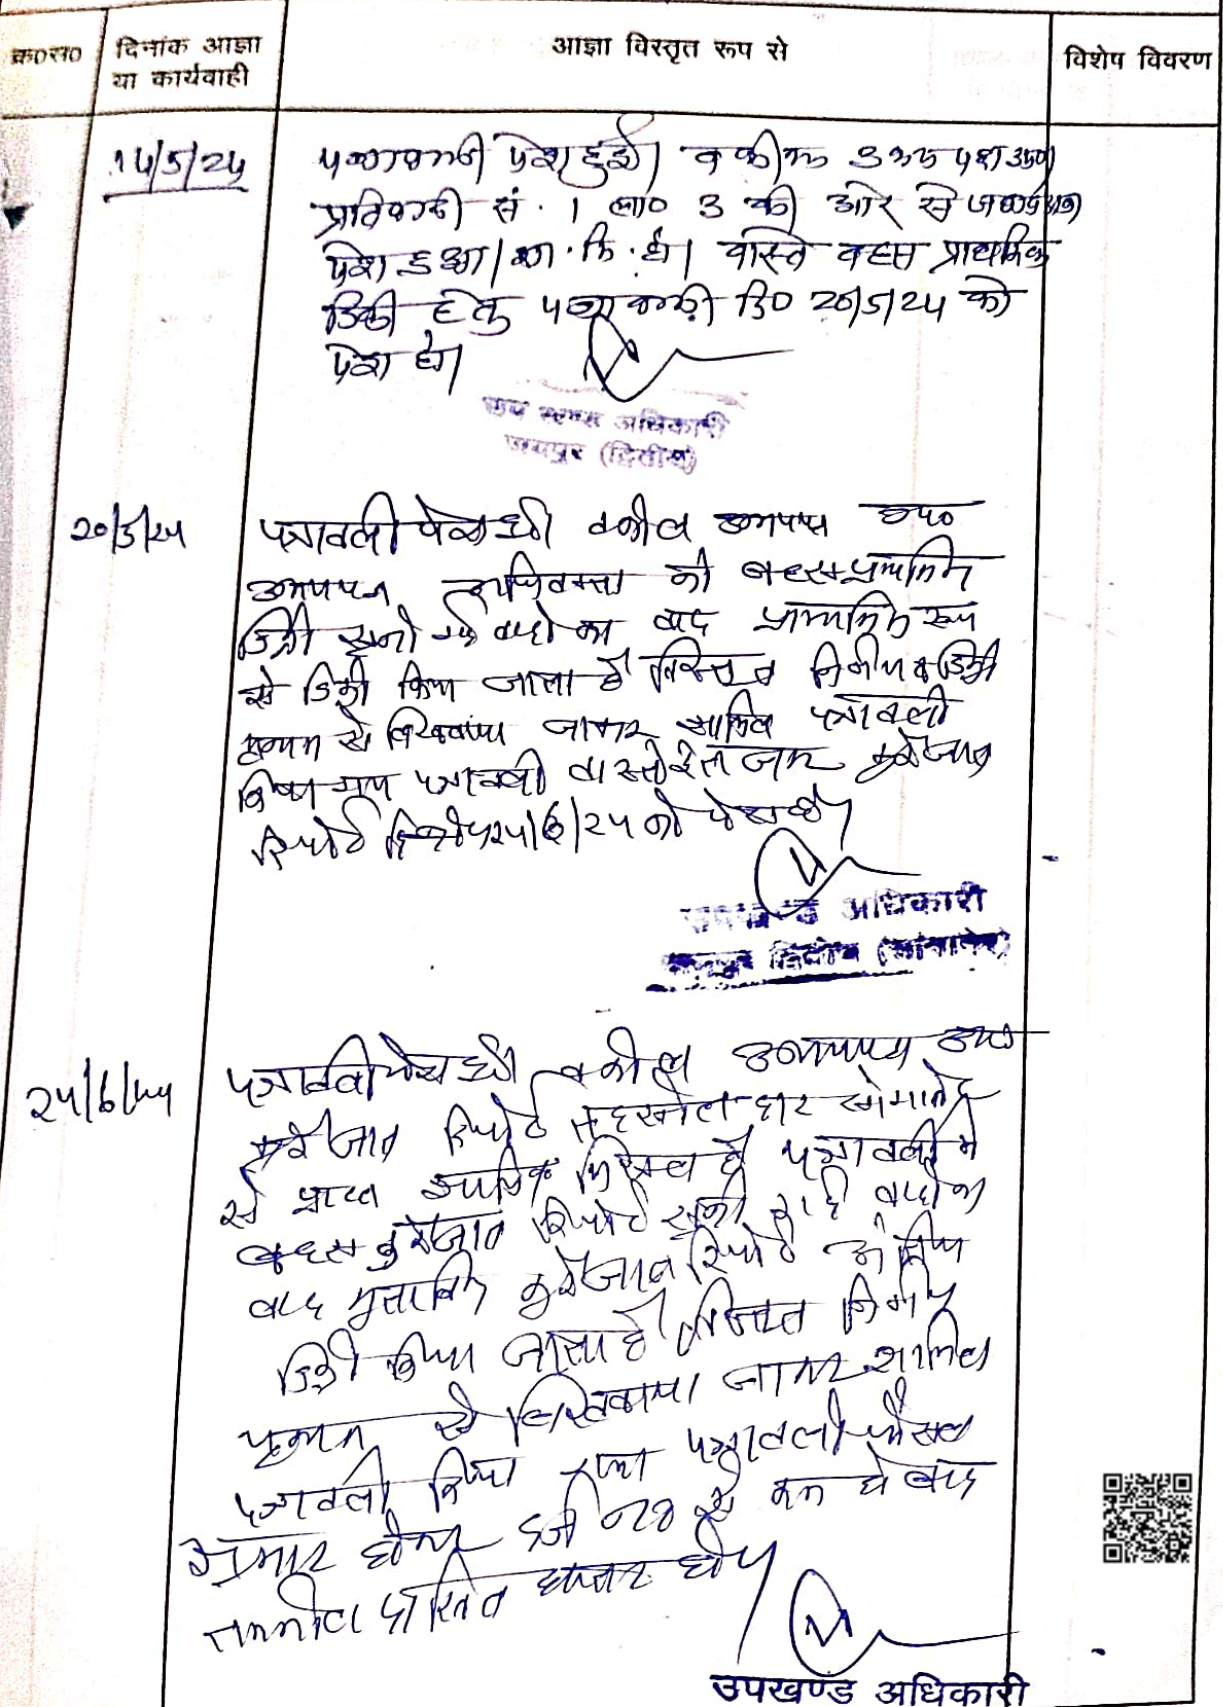 क्र0सं0 दिनांक आज्ञा या कार्यवाही आज्ञा विस्तृत रूप से विशेष विवरण
14/5/24
पत्रावली पेश हुई। वकील उभय पक्ष उप0
प्रतिवादी सं. 1 ला0 3 की ओर से
पेश हुआ। शा. मि. हो। वास्ते बहस प्राथमिक
डिक्री हेतु पत्रावली दि0 20/5/24 को
पेश हो।
उप खण्ड अधिकारी
जयपुर (द्वितीय)
20/5/24
पत्रावली पेश हुई। वकील उभयपक्ष उप0
उभयपक्ष अधिवक्ता की बहस प्राथमिक
डिक्री सुनी गई वादी का वाद प्राथमिक रूप
से डिक्री किया जाता है विस्तृत निर्णय व डिक्री
पृथक से लिखवाया जाकर शामिल पत्रावली
किया गया पत्रावली वास्ते कुर्रेजात
रिपोर्ट दिनांक 24/6/24 को पेश हो।
उपखण्ड अधिकारी
जयपुर द्वितीय (सांगानेर)
24/6/24
पत्रावली पेश हुई। वकील उभयपक्ष उप0
कुर्रेजात रिपोर्ट तहसीलदार सांगानेर
से प्राप्त शामिल मिसल है पत्रावली में
बहस कुर्रेजात रिपोर्ट सुनी गई वादी का
वाद मुताबिक कुर्रेजात रिपोर्ट अंतिम
डिक्री किया जाता है विस्तृत निर्णय
पृथक से लिखवाया जाकर शामिल
पत्रावली किया गया पत्रावली फैसल
शुमार होकर दर्ज नम्बर से कम हो बाद
तकमील दाखिल दफ्तर हो।
उपखण्ड अधिकारी